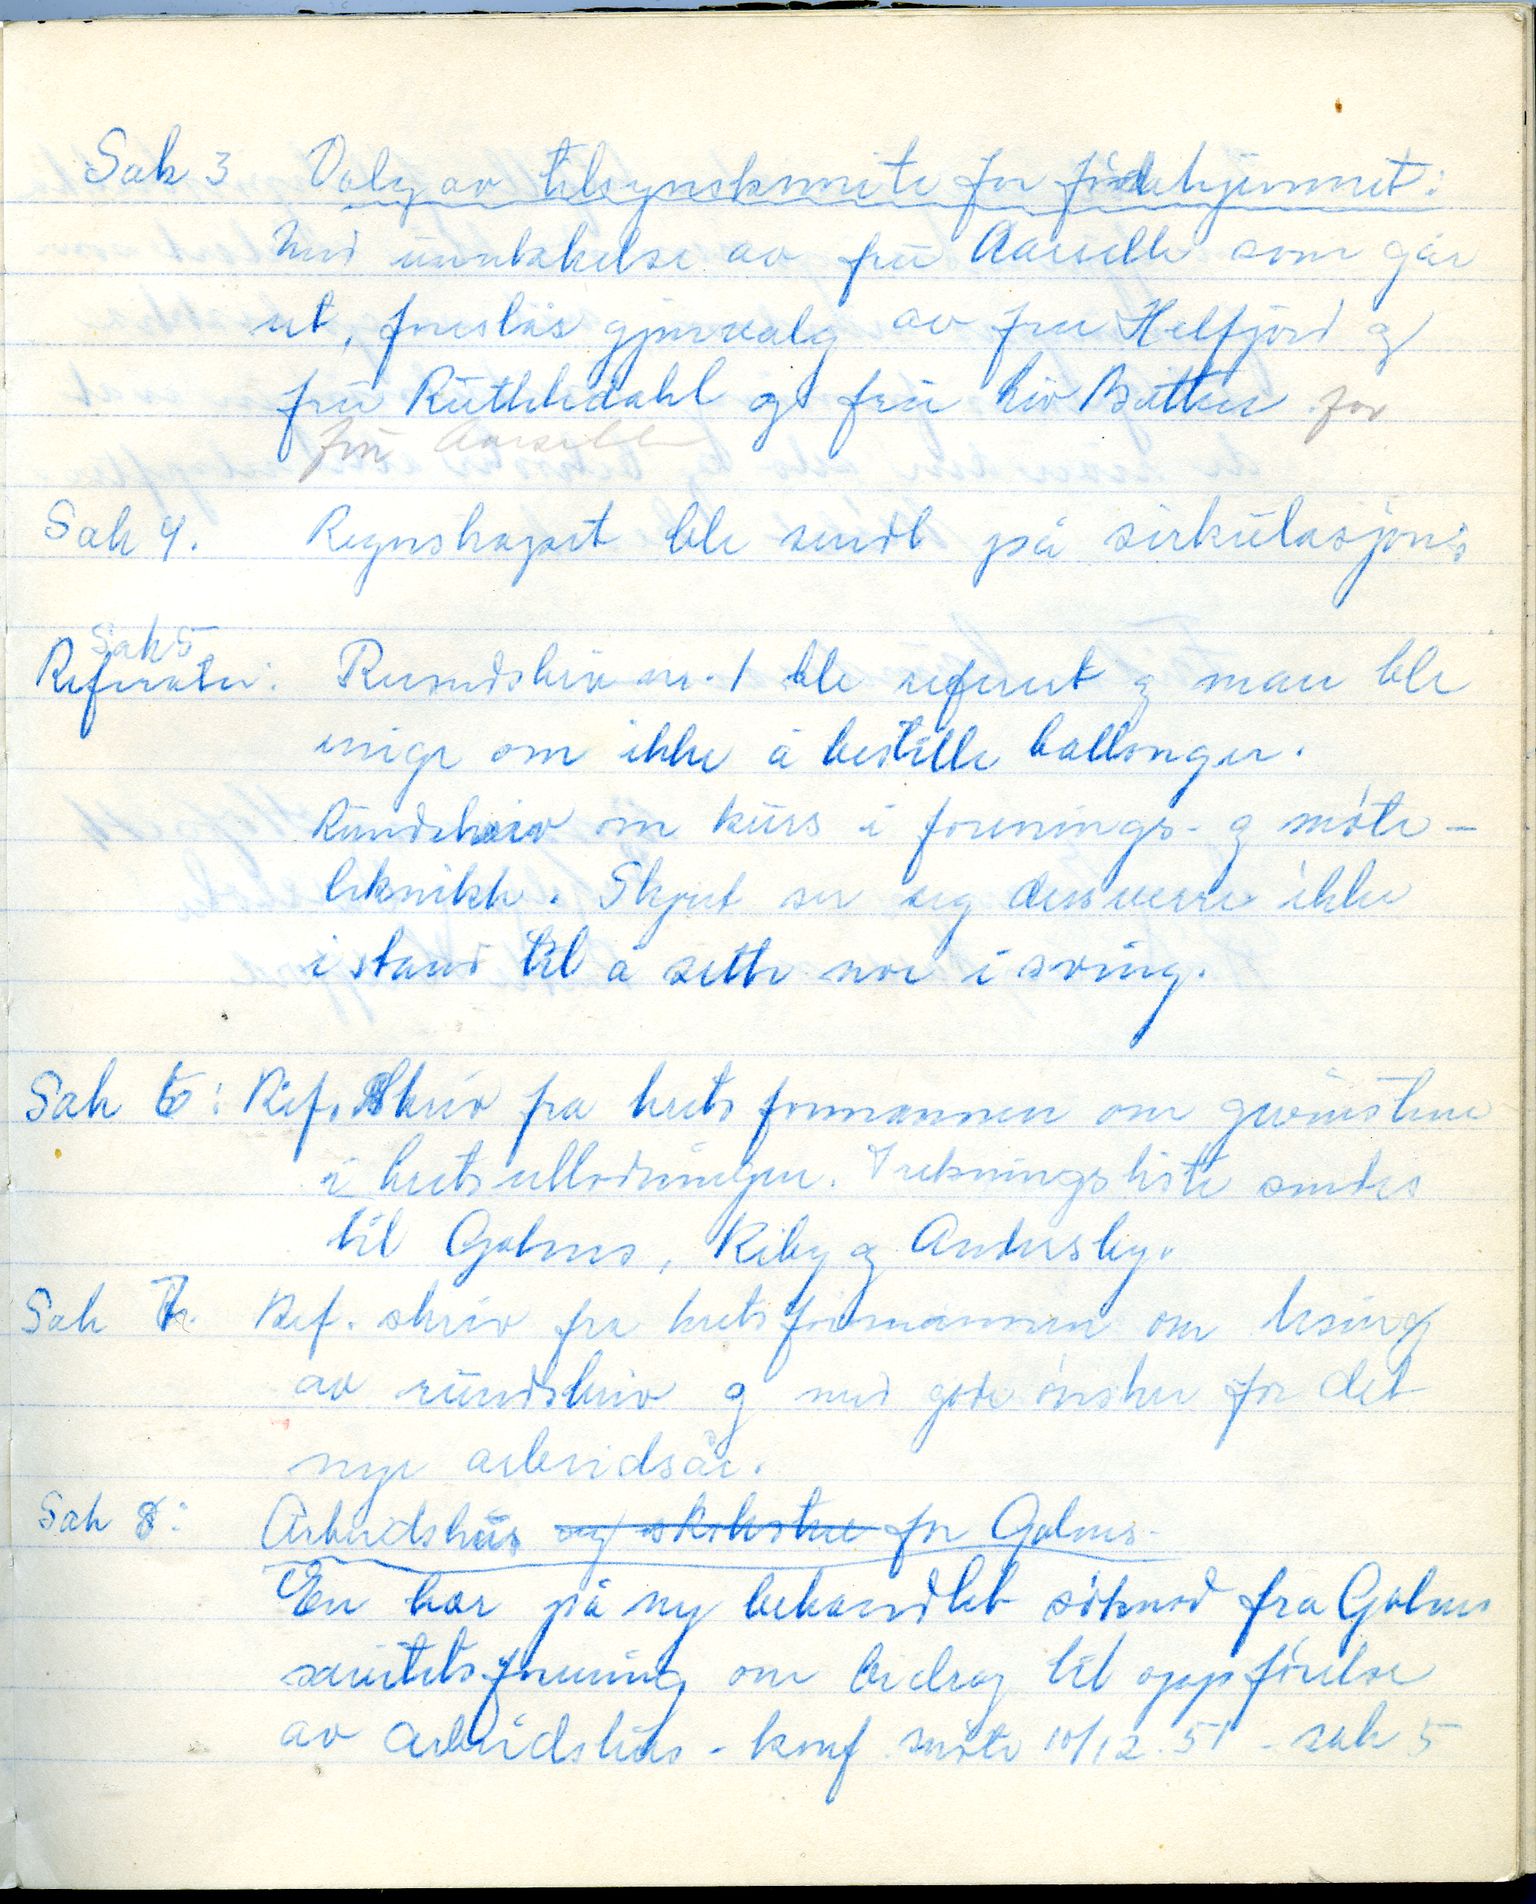 Sak 3 Valg av tilsynskomite for fødehjemmet:
Med unntakelse av fru Aarseth som går
ut, foreslås gjenvalg av fru Helfjord og
fru Ruthledahl og fru Liv Batten for
fru Aarseth
Sak 4. Regnskapet ble sendt på sirkulasjon:
Sak 5
Referater: Rundskriv nr. 1 ble referert og man ble
enige om ikke å bestille ballonger.
Rundskriv om kurs i forenings- og møte-
teknikk. Styret ser seg dessverre ikke
i stand til å sette noe i sving.
Sak 6: Ref. Skriv fra kretsformannen om gevinstene
i kretsutlodningen. Trekningsliste sendes
til Golnes, Kiby og Andersby.
Sak 7. Ref. skriv fra kretsformannen om lesing
av rundskriv og med gode ønsker for det
nye arbeidsår.
Sak 8: Arbeidshus og for Golnes.
En har på ny behandlet søknad fra Golnes
sanitetsforening om bidrag til oppførelse
av arbeidshus - konf. møte 10/12.51 - sak 5